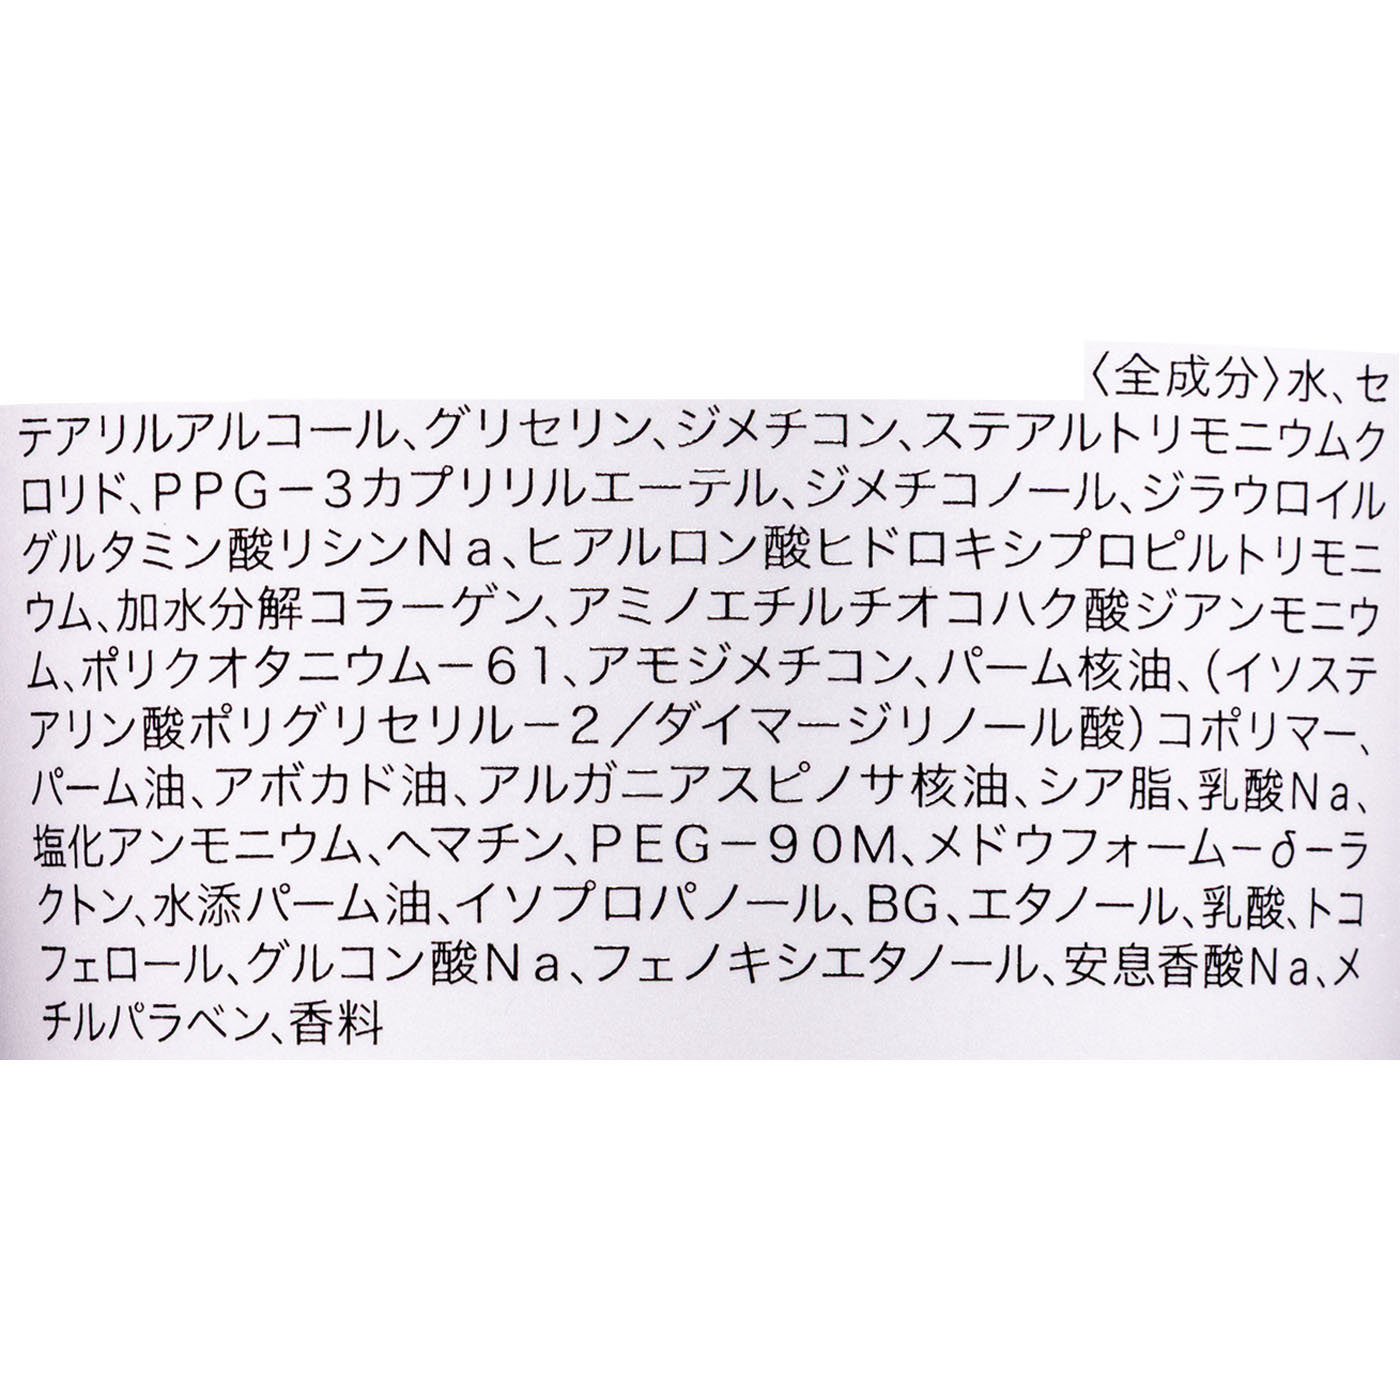 〈全成分〉水、セ
テアリルアルコール、グリセリン、ジメチコン、ステアルトリモニウムク
ロリド、PPG－3カプリリルエーテル、ジメチコノール、ジラウロイル
グルタミン酸リシンNa、ヒアルロン酸ヒドロキシプロピルトリモニ
ウム、加水分解コラーゲン、アミノエチルチオコハク酸ジアンモニウ
ム、ポリクオタニウム－61、アモジメチコン、パーム核油、(イソステ
アリン酸ポリグリセリル－2／ダイマージリノール酸)コポリマー、
パーム油、アボカド油、アルガニアスピノサ核油、シア脂、乳酸Na、
塩化アンモニウム、ヘマチン、PEG－90M、メドウフォーム－δ－ラ
クトン、水添パーム油、イソプロパノール、BG、エタノール、乳酸、トコ
フェロール、グルコン酸Na、フェノキシエタノール、安息香酸Na、メ
チルパラベン、香料